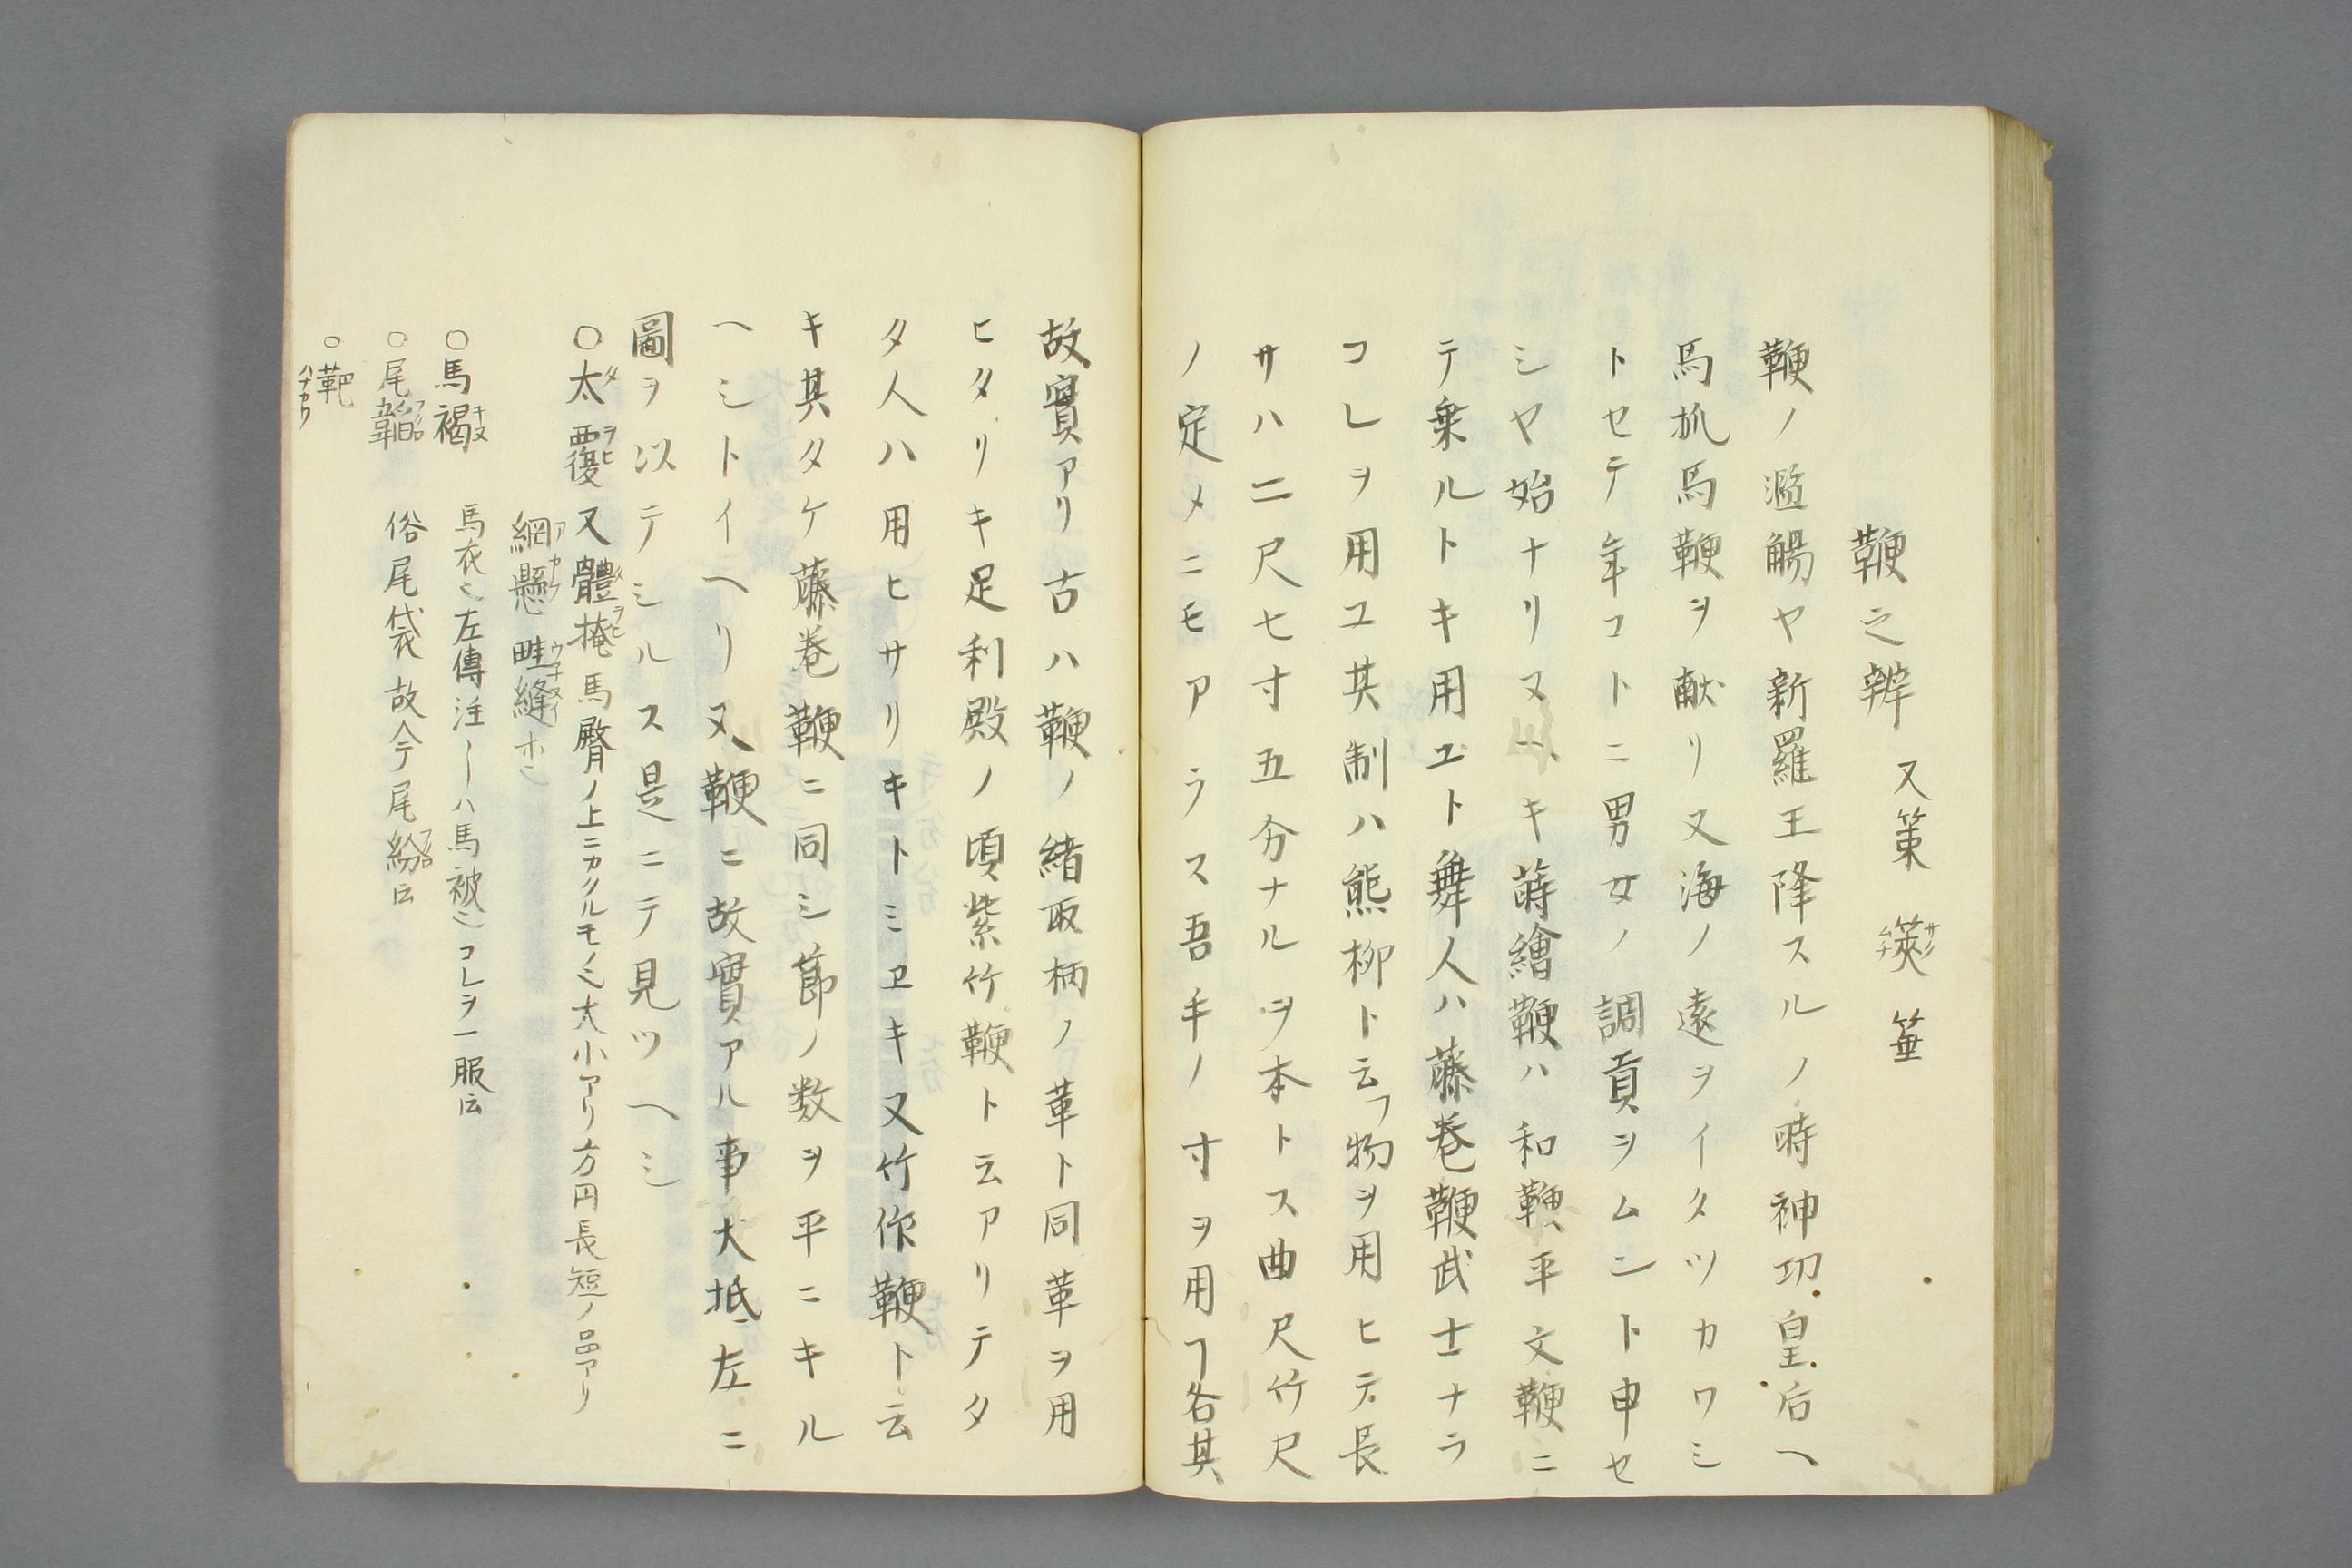 鞭之辨 又策 筴 箠
鞭ノ濫觴ヤ新羅王降スルノ時神功皇后ヘ
馬抓馬鞭ヲ献リ又海ノ遠ヲイタツカワシ
トセテ年コトニ男女ノ調貢ヲムント申セ
シヤ始ナリヌヘキ蒔繪鞭ハ和鞭平文鞭ニ
テ乗ルトキ用ユト舞人ハ藤巻鞭武士ナラ
コレヲ用ユ其制ハ熊柳ト云フ物ヲ用ヒテ長
サハ二尺七寸五分ナルヲ本トス曲尺竹尺
ノ定メニモアラス吾手ノ寸ヲ用フ各其
故實アリ古ハ鞭ノ緒取柄ノ革ト同革ヲ用
ヒタリキ足利殿ノ頃紫竹鞭ト云アリテタ
タ人ハ用ヒサリキトミヱキ又竹作鞭ト云
キ其タケ藤巻鞭ニ同シ節ノ数ヲ平ニキル
ヘシトイヘリ又鞭ニ故實アル事大抵左ニ
圖ヲ以テシルス是ニテ見ツヘシ
○太覆又體掩馬臀ノ上ニカクルモノ〻大小アリ方円長短ノ品アリ
網懸 畦縫ホ〻
○馬褐 馬衣〻左傳注ーハ馬被〻コレヲ一服云
○尾韜 俗尾袋故今尾紛云
○靶